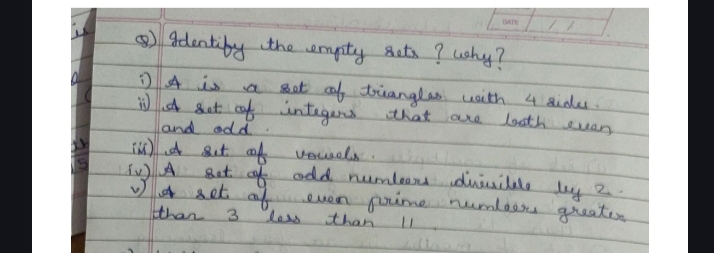 DATE / /
Q) Identify the empty sets ? why?
i) A is a set of triangles with 4 sides.
ii) A set of integers that are both even
and odd.
iii) A set of vowels.
iv) A set of odd numbers divisible by 2.
v) A set of even prime numbers greater
than 3 less than 11